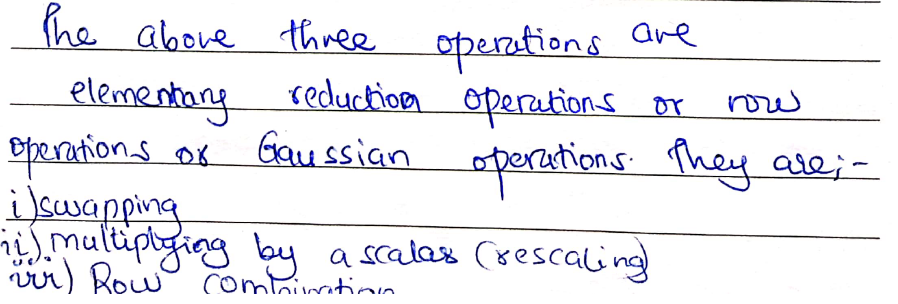 The above three operations are
elementary reduction operations or row
operations or Gaussian operations. They are;-
i) swapping
ii) multiplying by a scalar (rescaling)
iii) Row combination